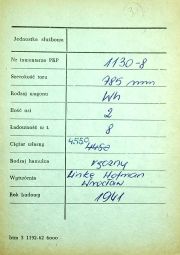 Jednostka służbowa
Nr inwentarza PKP 1130-8
Szerokość toru 785 mm
Rodzaj wagonu Wh
Ilość osi 2
Ładowność w t. 8
Ciężar własny 4550 4450
Rodzaj hamulca ręczny
Wytwórnia Linke Hofman
Wrocław
Rok budowy 1941